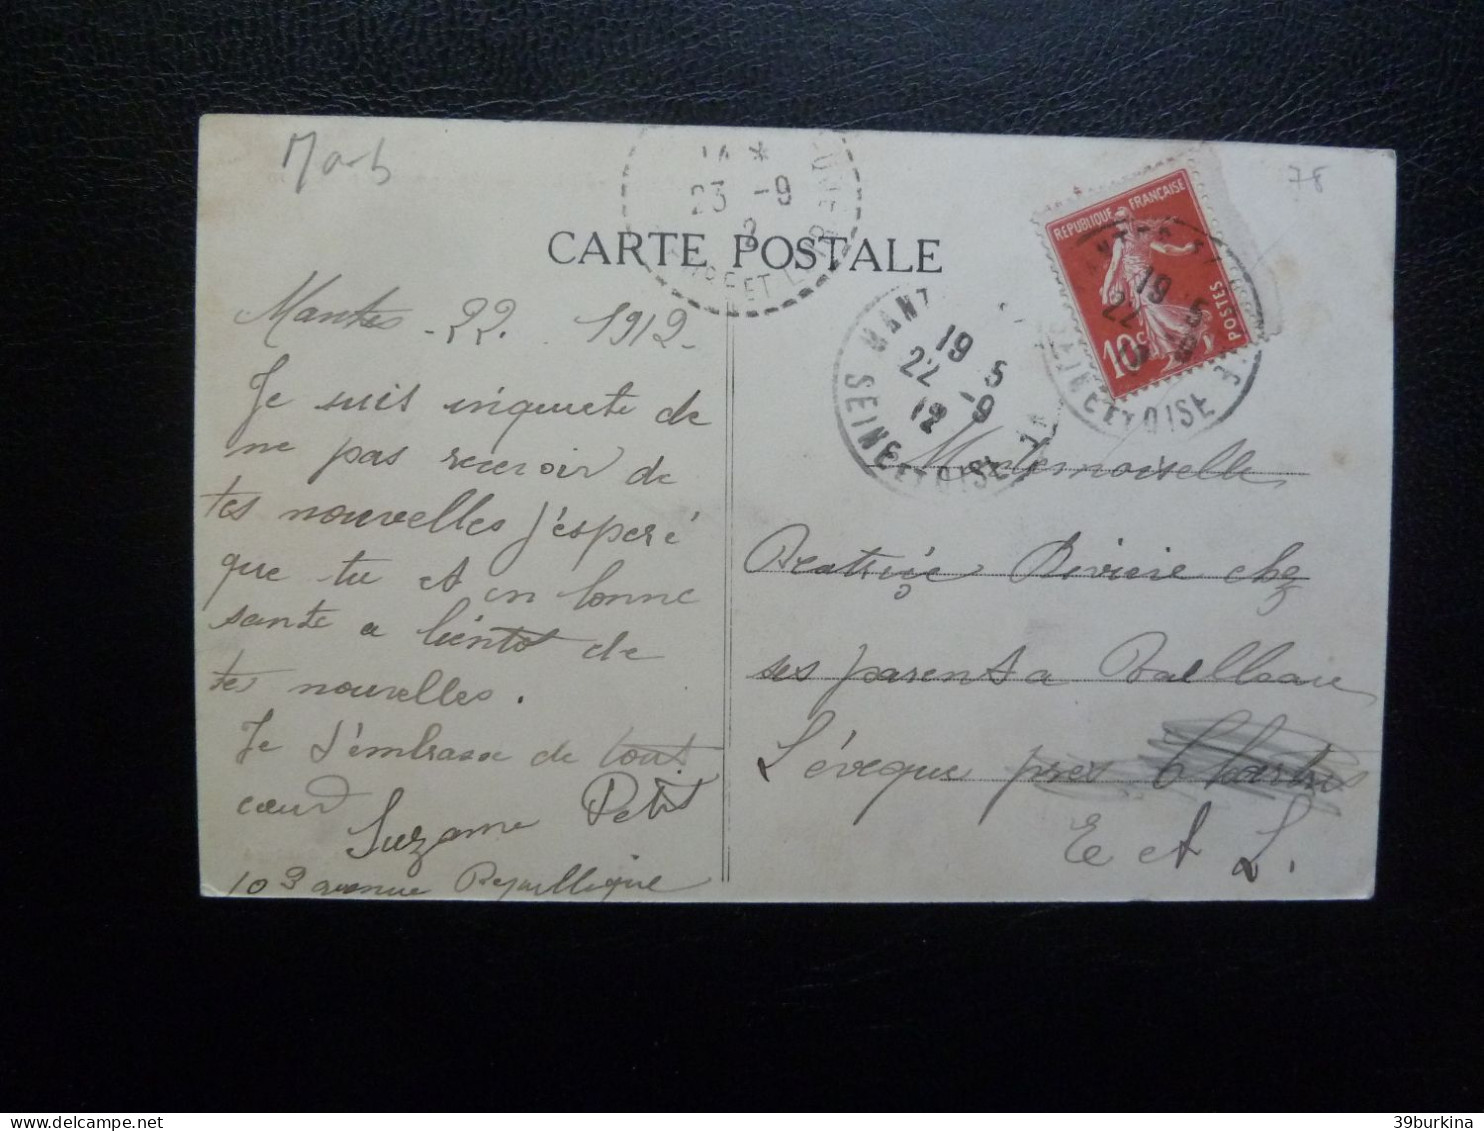 78
CARTE POSTALE
Mantes - 22. 1912 -
Je suis inquiete de
ne pas recevoir de
tes nouvelles j'esperé
que tu et en bonne
sante a bientot de
tes nouvelles.
Je t'embrasse de tout
cœur
Suzanne Petit
103 avenue Republique
23 -9
ET L
MANT
19 5
22 -9
12
SEINE ET OISE
REPUBLIQUE FRANÇAISE
POSTES
10c
19 5
22
SEINE ET OISE
Mademoiselle
Beatrice Rivière chez
ses parents a Bailleau
L'éveque pres Chartres
E et L.
39burkina